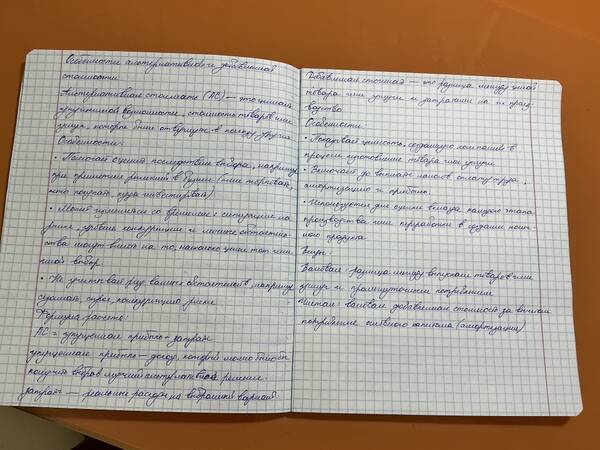 Особенности альтернативной и добавленной
стоимости.
Альтернативная стоимость (АС) — это цена
упущенной возможности, стоимость товаров или
услуг, которые были отвергнуты в пользу других
Особенности:
• Помогает оценить последствия выбора, например
при принятии решений в бизнесе (чем торговать,
что покупать, куда инвестировать)
• Может изменяться со временем и ситуацией на
рынке, уровень конкуренции и личные обстоятель-
ства могут влиять на то, насколько ценен тот или
иной выбор.
• Не учитывает ряд важных обстоятельств, например
сезонность, спрос, конкуренцию, риски
Формула расчета:
АС = упущенная прибыль - затраты
упущенная прибыль — доход, который можно было бы
получить выбрав лучшее альтернативное решение.
затраты — реальные расходы на выбранный вариант
Добавленная стоимость — это разница между ценой
товара или услуги и затратами на их произ-
водство
Особенности:
• Показывает ценность, созданную компанией в
процессе изготовления товара или услуги
• Включает до вычета налогов оплату труда,
амортизацию и прибыль.
• Используется для оценки вклада каждого этапа
производства или переработки в создание конеч-
ного продукта
Виды:
Валовая: разница между выпуском товаров или
услуг и промежуточным потреблением
Чистая: валовая добавленная стоимость за вычетом
потребления основного капитала (амортизации)